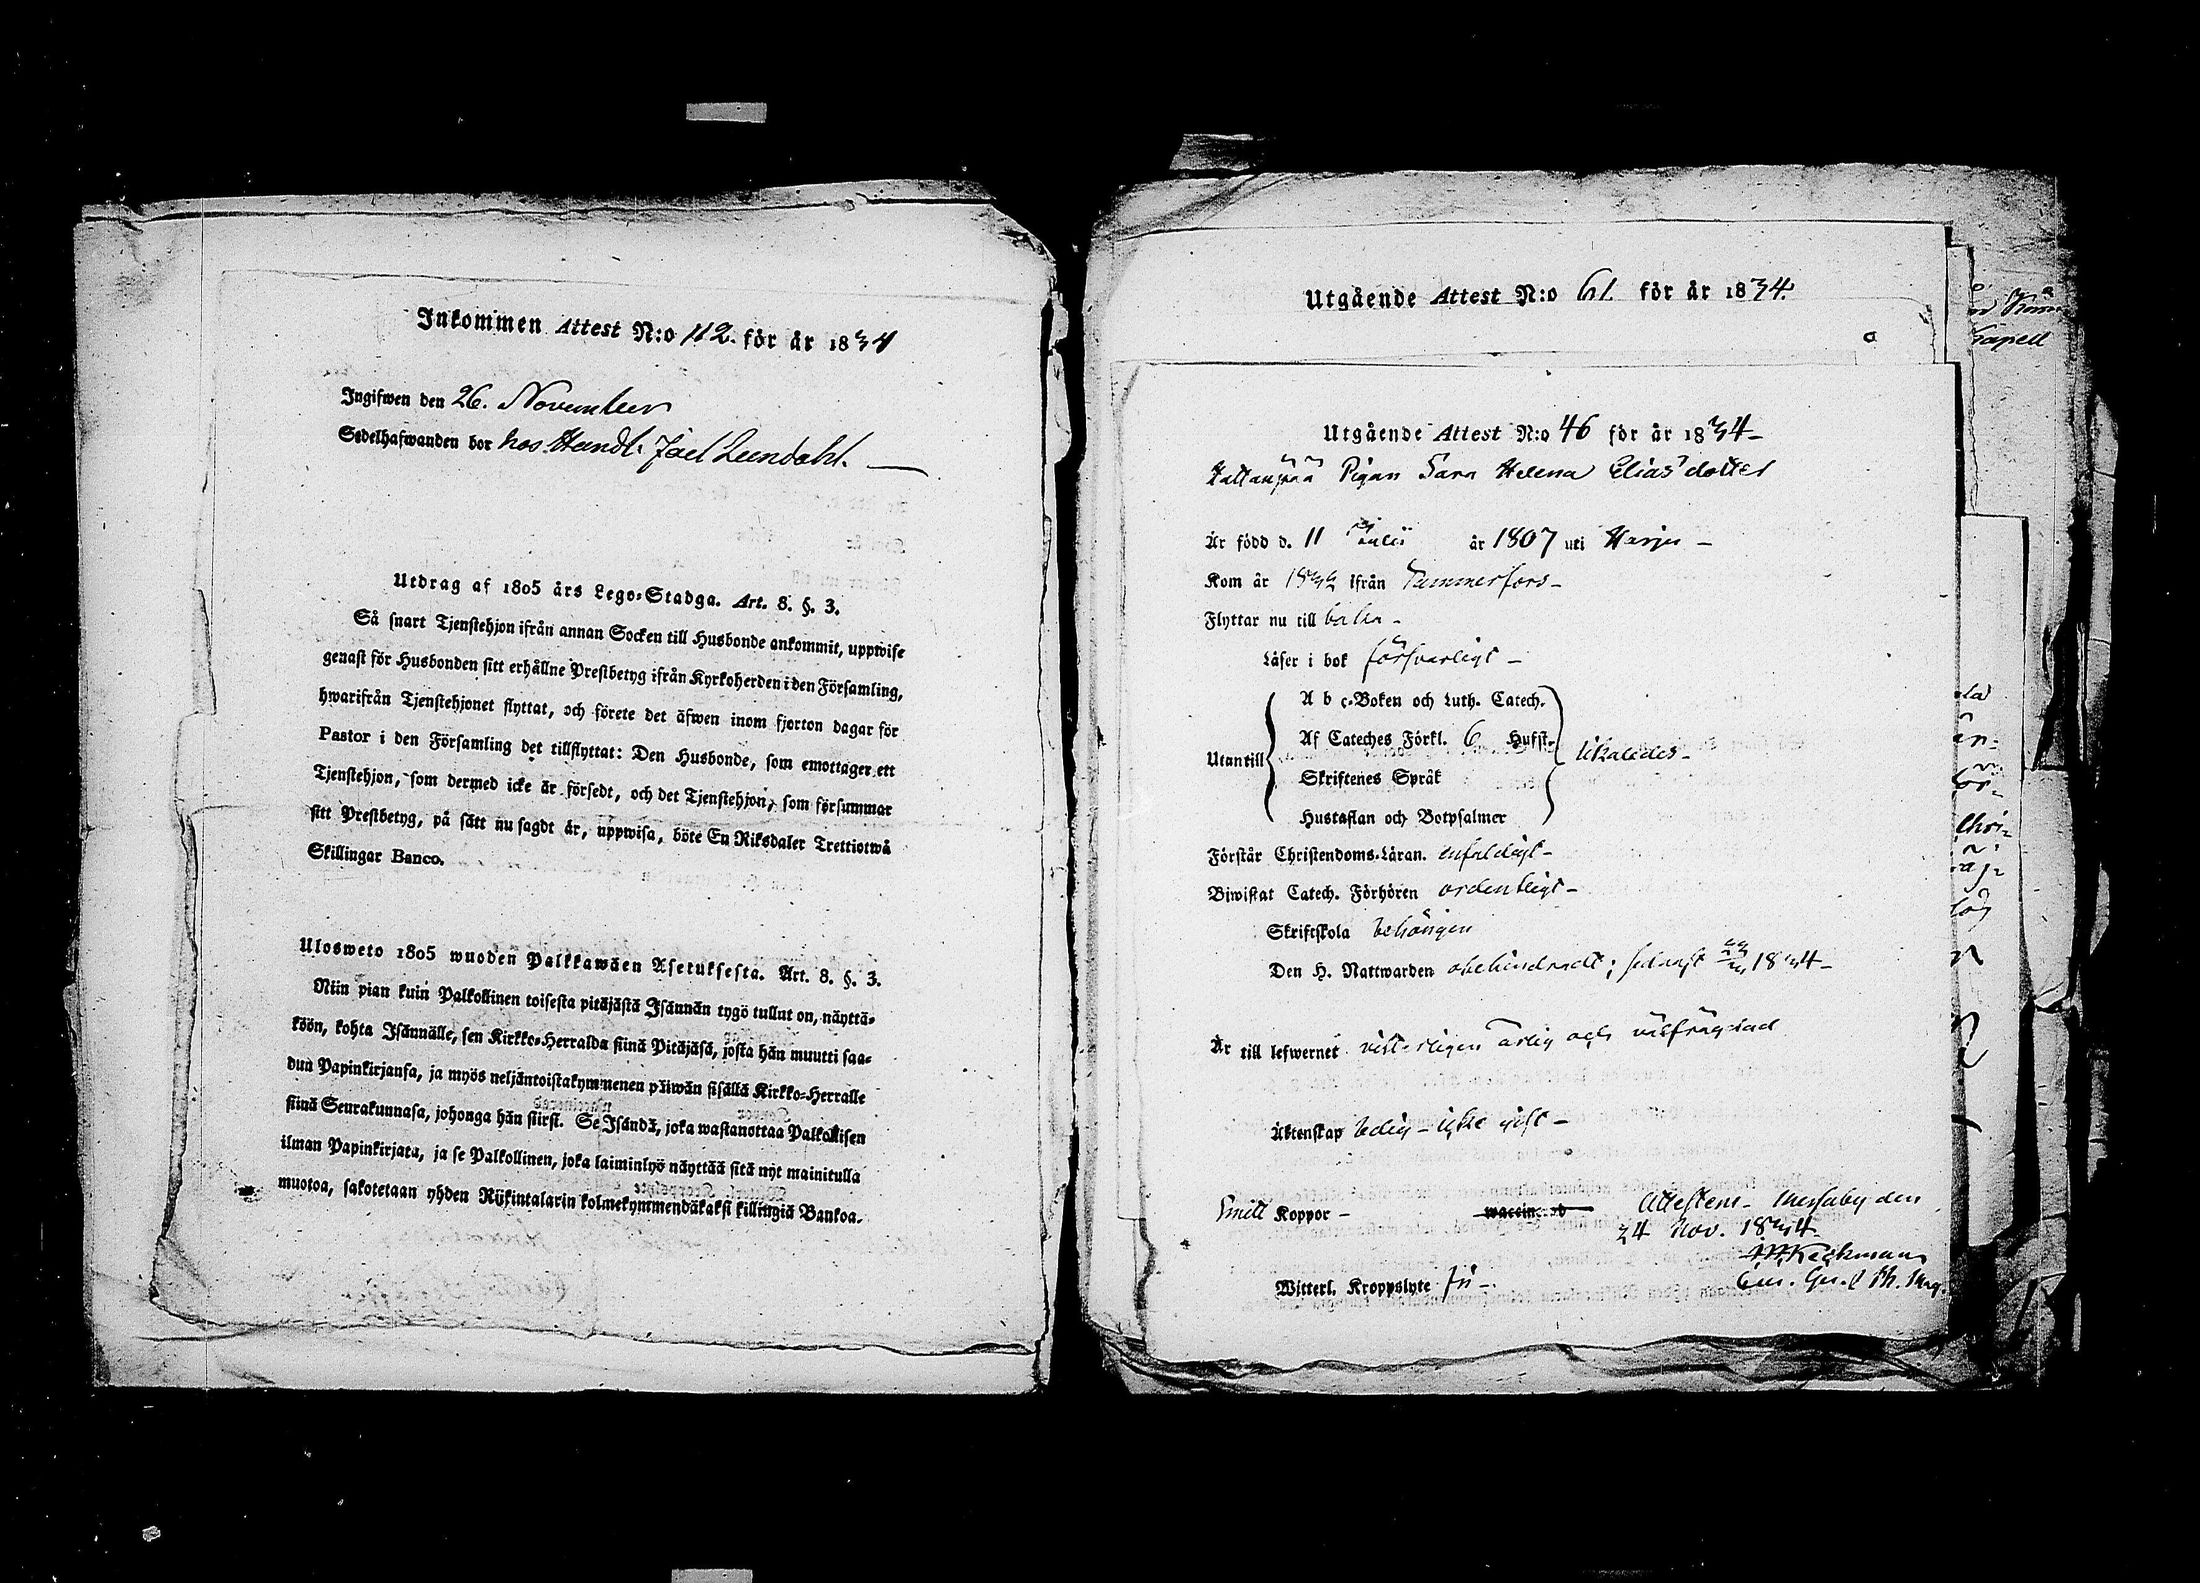 Inkommen Attest N:o 112. för år 1834
Ingifwen den 26. November
Sedelhafwanden bor hos Handl. Joel Leendahl.
Utdrag af 1805 års Lego-Stadga. Art. 8. §. 3.
Så snart Tjenstehjon ifrån annan Socken till Husbonde ankommit, uppwise
genast för Husbonden sitt erhållne Prestbetyg ifrån Kyrkoherden i den Församling,
hwarifrån Tjenstehjonet flyttat, och förete det äfwen inom fjorton dagar för
Pastor i den Församling det tillflyttat: Den Husbonde, som emottager ett
Tjenstehjon, som dermed icke är försedt, och det Tjenstehjon, som försummar
sitt Prestbetyg, på sätt nu sagdt är, uppwisa, böte En Riksdaler Trettiotwå
Skillingar Banco.
Ulosweto 1805 wuoden Palkkawäen Asetuksesta. Art. 8. §. 3.
Niin pian kuin Palkollinen toisesta pitäjästä Isännän tygö tullut on, näyttä-
köön, kohta Isännälle, sen Kirkko-Herralda siinä Pitäjäsä, josta hän muutti saa-
dun Papinkirjansa, ja myös neljäntoistakymmenen päiwän sisällä Kirkko-Herralle
siinä Seurakunnasa, johonga hän siirsi. Se Isändä, joka wastanottaa Palkollisen
ilman Papinkirjata, ja se Palkollinen, joka laiminlyö näyttää sitä nyt mainitulla
muotoa, sakotetaan yhden Rijkintalarin kolmekymmendäkaksi killingiä Bankoa.
Utgående Attest N:o 61. för år 1834.
Utgående Attest N:o 46 för år 1834-
Pigan Sara Helena Eliasdotter
Är född d. 11 Julii år 1807 uti Harju -
Kom år 1832 ifrån Tammerfors-
Flyttar nu till
Läser i bok försvarligt -
A b c-Boken och Luth. Catech.
Af Cateches Förkl. 6 Hufst.
Utantill likaledes-
Skriftenes Språk
Hustaflan och Botpsalmer
Förstår Christendoms-Läran. enfaldigt-
Biwistat Catech. Förhören ordentligt-
Skriftskola behörigen
Den H. Nattwarden obehindradt; sednast 1834-
Är till lefwernet visserligen ärlig och välfrägdad
Äktenskap ledig - icke gift -
Smitt Koppor - waccinerad
Attestent. Messuby den
24 Nov. 1834-
Witterl. Kroppslyte